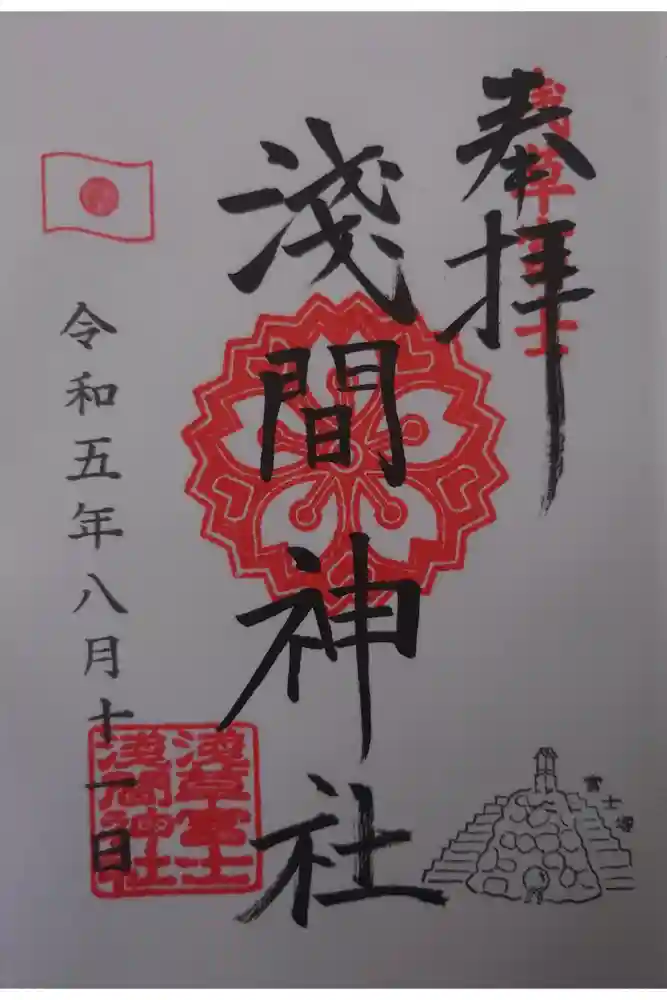 奉拝
浅草富士
淺間神社
令和五年八月十一日
淺草富士
淺間神社
富士塚